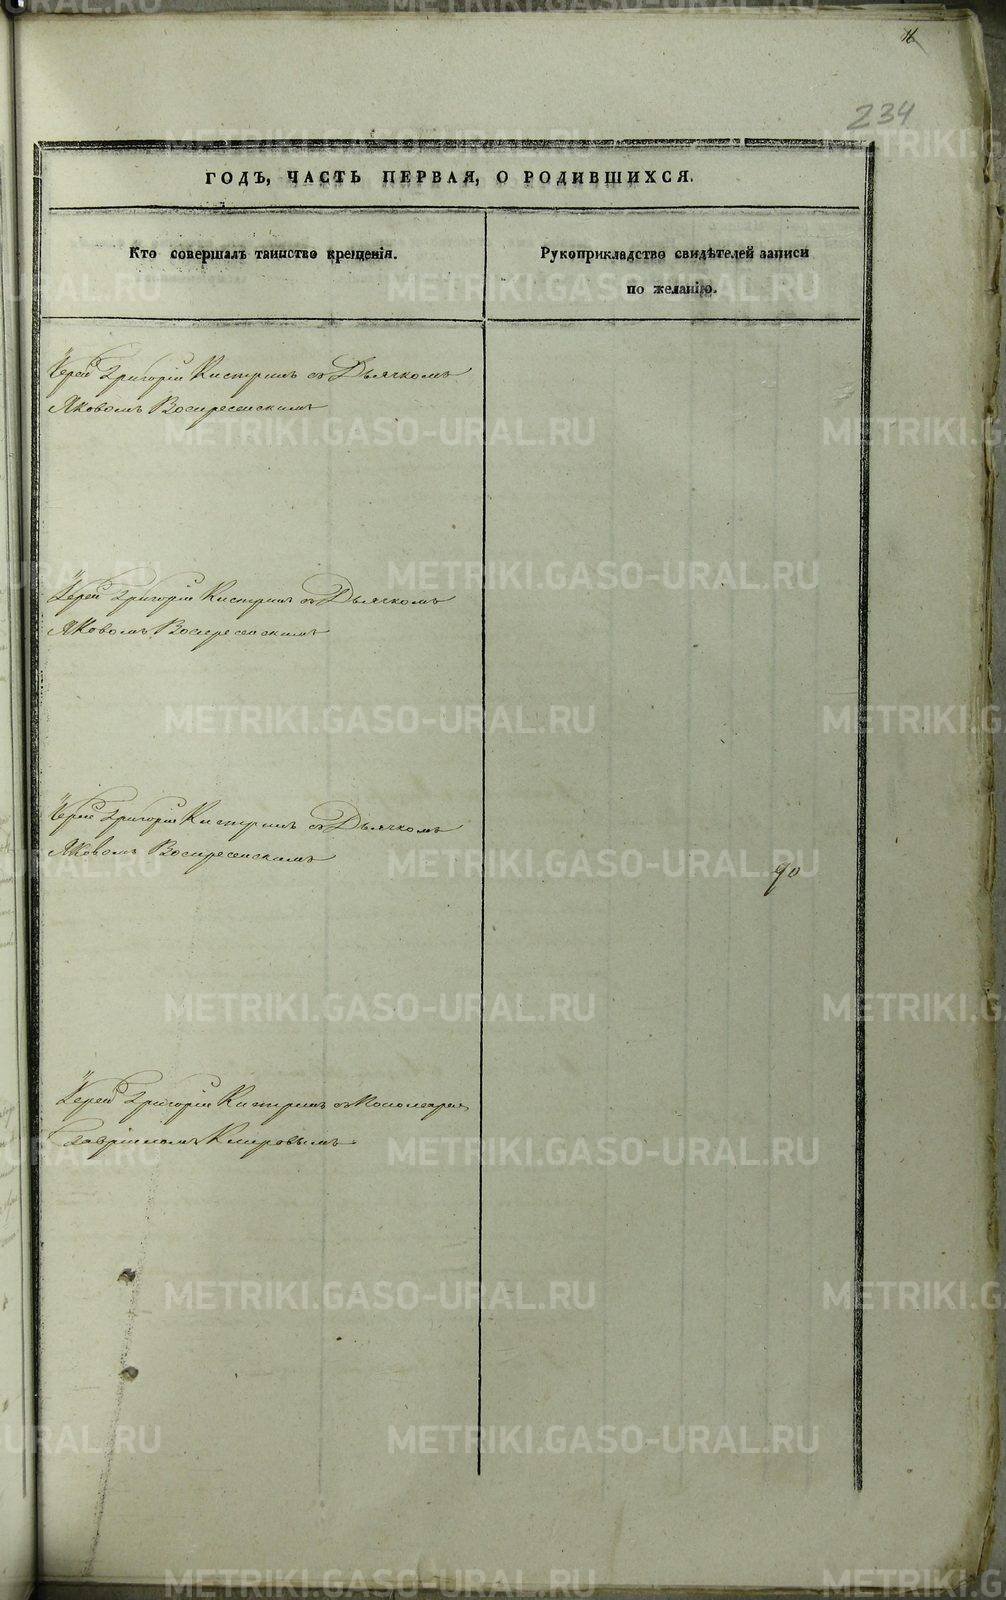 16
234
ГОДЪ, ЧАСТЬ ПЕРВАЯ, О РОДИВШИХСЯ.
Кто совершалъ таинство крещенія.
Рукоприкладство свидѣтелей записи
по желанію.
Іерей Григорій Кистринъ съ Дьячкомъ
Яковомъ Воскресенскимъ
Іерей Григорій Кистринъ съ Дьячкомъ
Яковомъ Воскресенскимъ
Іерей Григорій Кистринъ съ Дьячкомъ
Яковомъ Воскресенскимъ
90
Іерей Григорій Кистринъ съ Пономарем
Гавріиломъ
METRIKI.GASO-URAL.RU